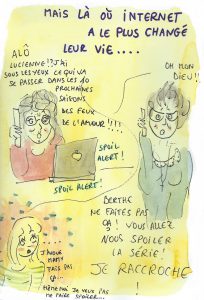 MAIS LÀ OÙ INTERNET
A LE PLUS CHANGÉ
LEUR VIE....
ALÔ
LUCIENNE!? J'AI
SOUS LES YEUX CE QUI VA
SE PASSER DANS LES 20
PROCHAINES
SAISONS
DES FEUX
DE L'AMOUR!!!!
OH MON
DIEU!!
SPOIL
ALERT!
SPOIL ALERT!
BERTHE
NE FAITES PAS
ÇA! VOUS ALLEZ
NOUS SPOILER
LA SÉRIE!
JE RACCROCHE
!
MAMY
FAIS PAS
ÇA...
MÊME MOI JE VEUX PAS
ME FAIRE SPOILER...